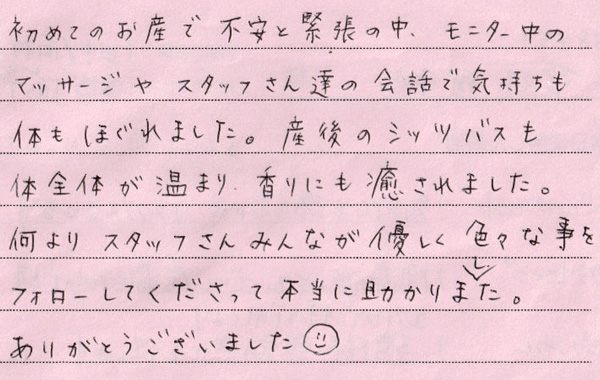 初めてのお産で不安と緊張の中、モニター中の
マッサージや スタッフさん達の会話で気持ちも
体もほぐれました。産後のシッツバスも
体全体が温まり、香りにも癒されました。
何よりスタッフさんみんなが優しく色々な事を
フォローしてくださって本当に助かりました。
ありがとうございました☺